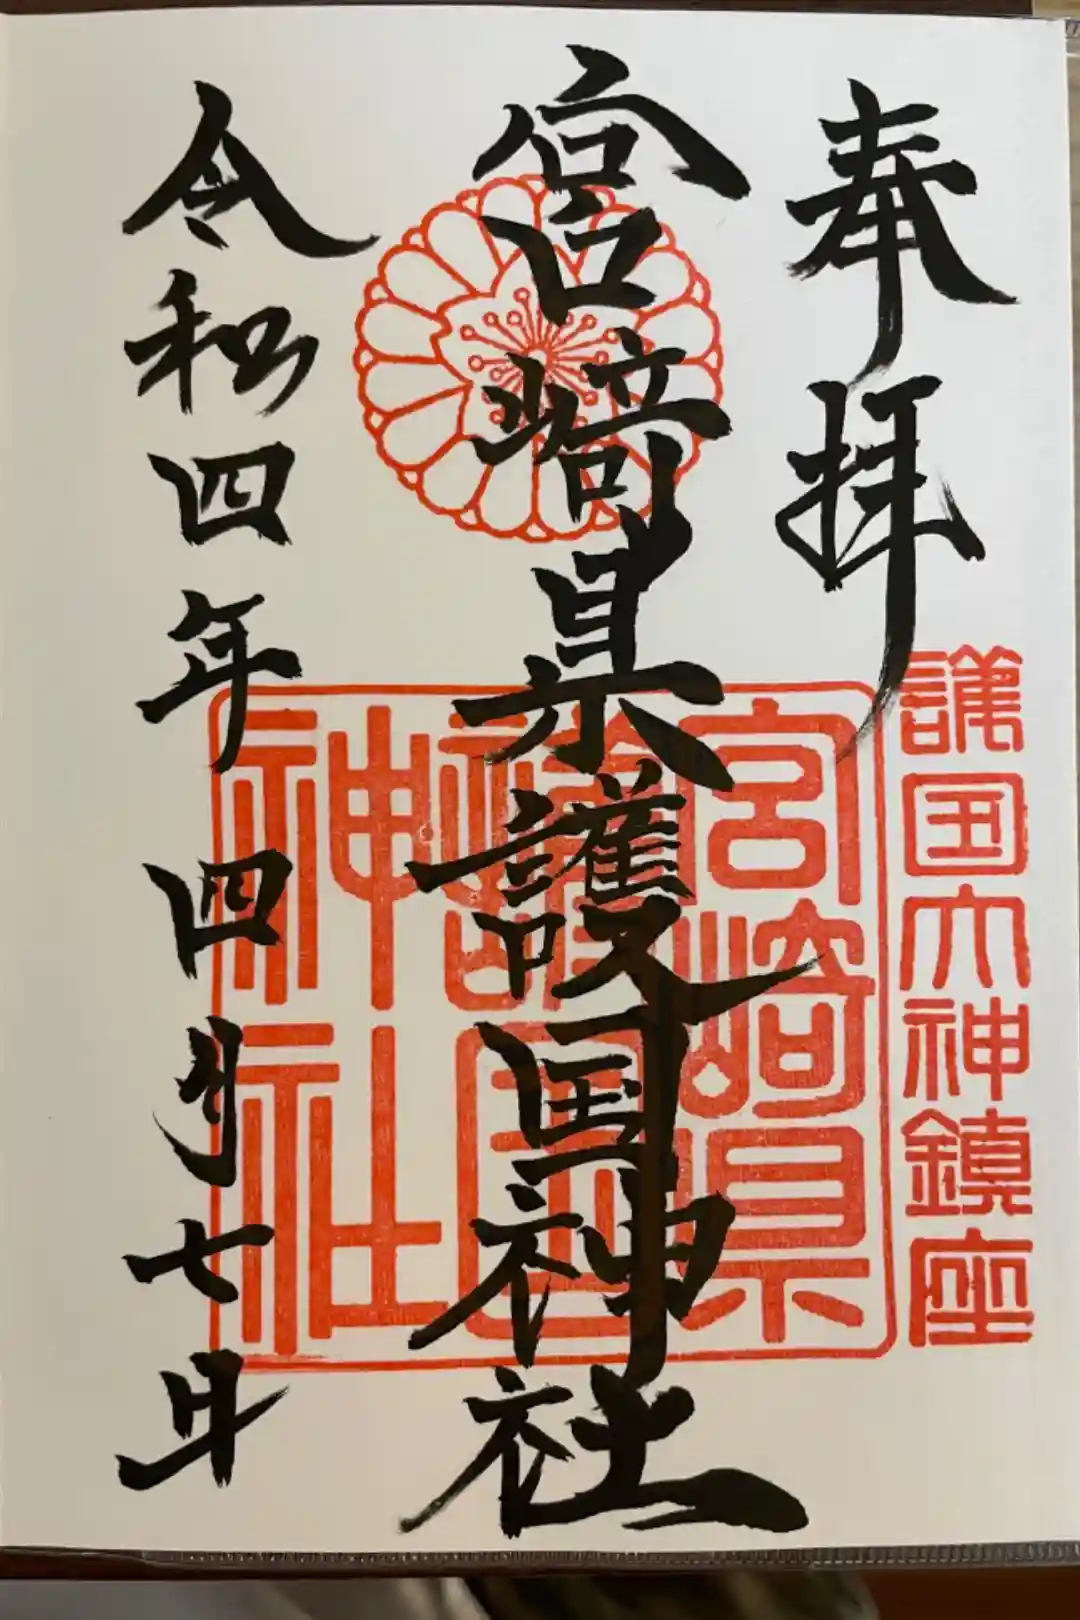 奉拝
護国大神鎮座
宮崎県護国神社
宮崎県
護国
神社
令和四年四月七日